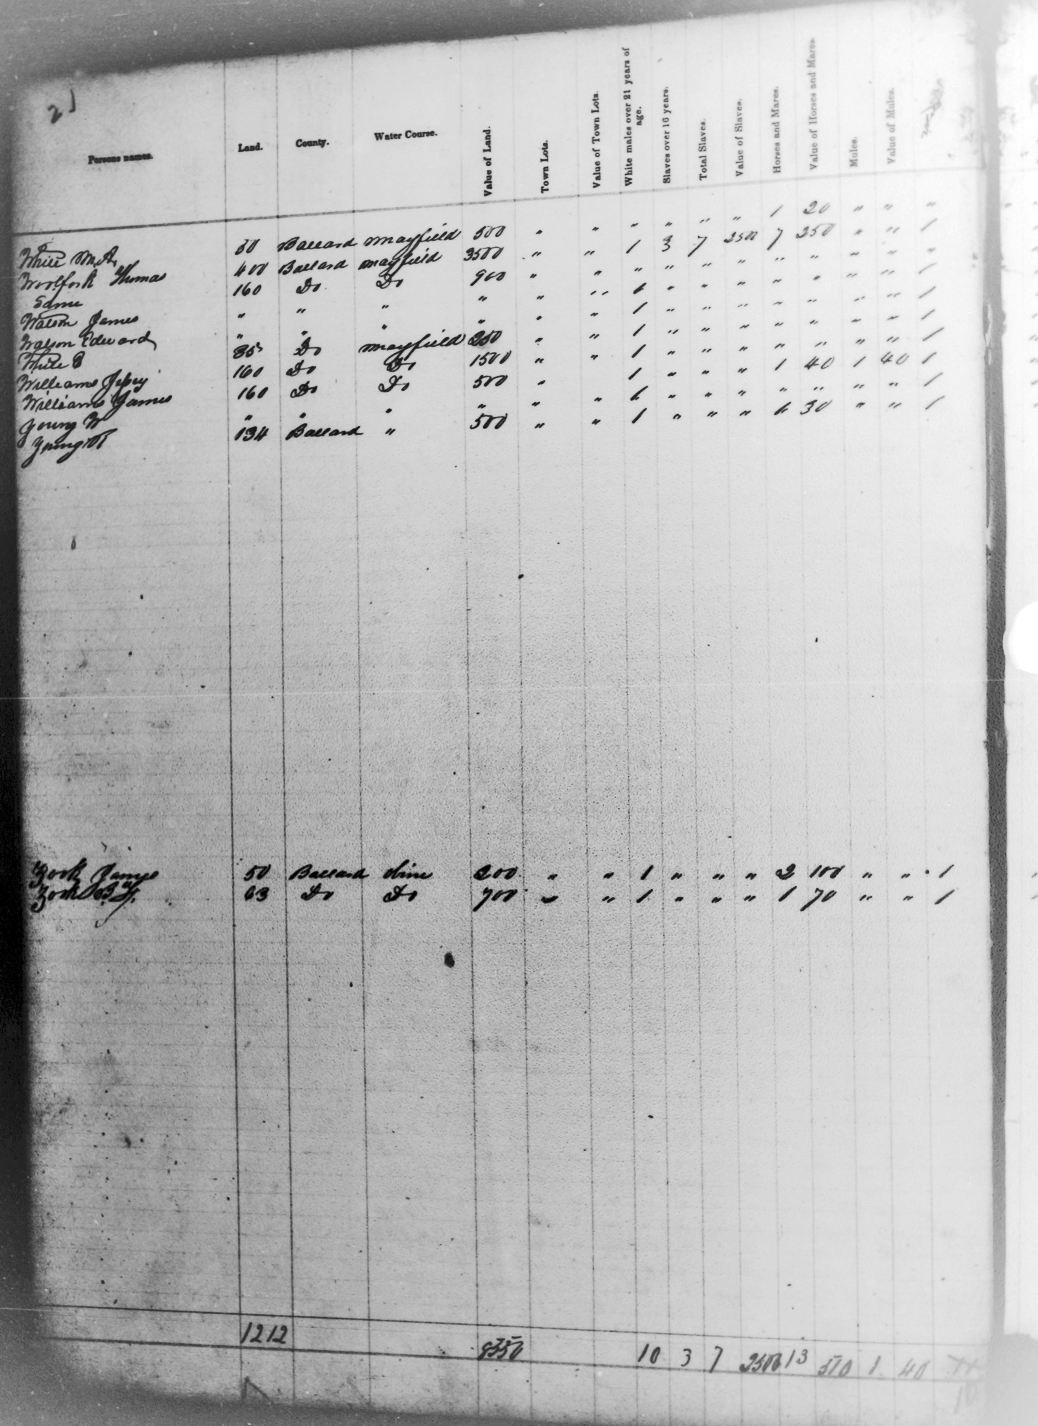 21
Persons names. Land. County. Water Course. Value of Land. Town Lots. Value of Town Lots. White males over 21 years of age. Slaves over 16 years. Total Slaves. Value of Slaves. Horses and Mares. Value of Horses and Mares. Mules. Value of Mules.
White Wm A. 50 Ballard Mayfield 500 " " " " " " 1 20 " " "
Woolfork Thomas 400 Ballard Mayfield 3500 " " 1 3 7 2500 7 250 " " 1
Same 160 Do Do 900 " " " " " " " " " " "
Watson James " " " " " " 1 " " " " " " " 1
Watson Edward " " " " " " 1 " " " " " " " 1
White B 35 Do Mayfield 250 " " 1 " " " " " " " 1
Williams 160 Do Do 1500 " " 1 " " " 1 40 1 40 1
Williams James 160 Do Do 500 " 1 " " " " " " " 1
Young W " " " " " " 1 " " " 1 30 " " 1
Young 134 Ballard " 500 " " 1 " " "
Zook James 50 Ballard 200 " " 1 " " " 2 100 " " 1
Zook 63 Do Do 700 " " 1 " " " 1 70 " " 1
1212 8550 10 3 7 2500 13 510 1 40